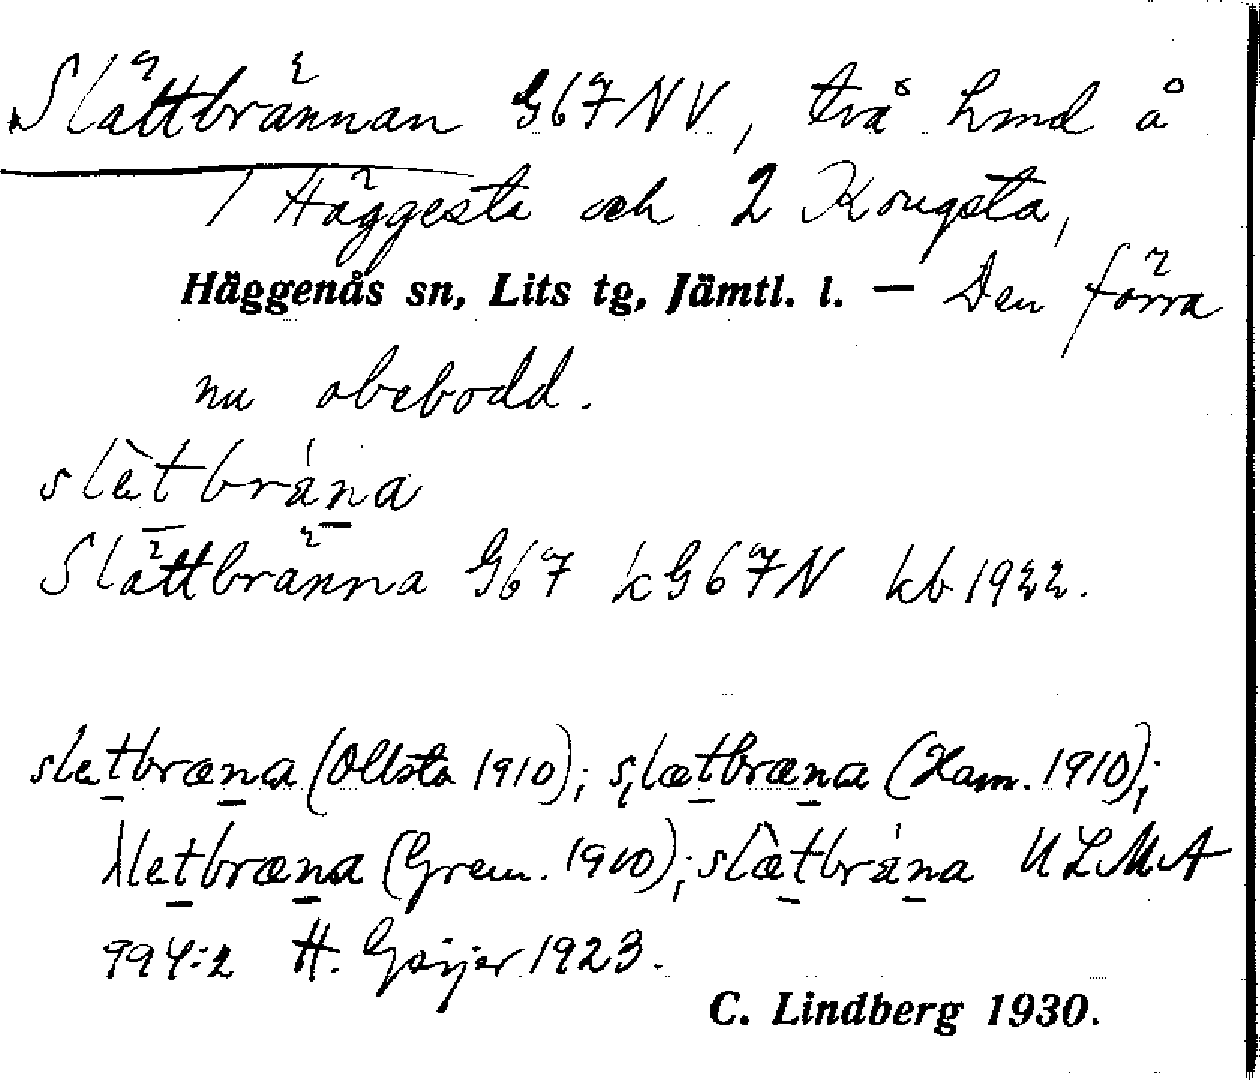 Slättbrännan G67NV, två hmd å
1 Häggesta och 2 Kougsta,
Häggenås sn, Lits tg, Jämtl. l. — Den förra
nu obebodd.
slètbrána
Slättbränna G67 kG67N kb 1922.
sletbræna (Ollsta 1910); slætbræna (Ham. 1910);
λletbræna (Grem. 1910); slætbrána ULMA
994:2 H. Geijer 1923.
C. Lindberg 1930.